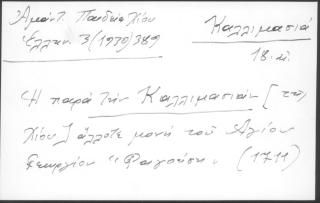 Ἀμάντ. Παιδεία Χίου
Ἑλλην. 3 (1930) 389
Καλλιμασιά
18. μ.
Ἡ παρά τήν Καλλιμασιάν [τῆς
Χίου] ἄλλοτε μονή τοῦ Ἁγίου
Γεωργίου "Φαγούση" (1711)